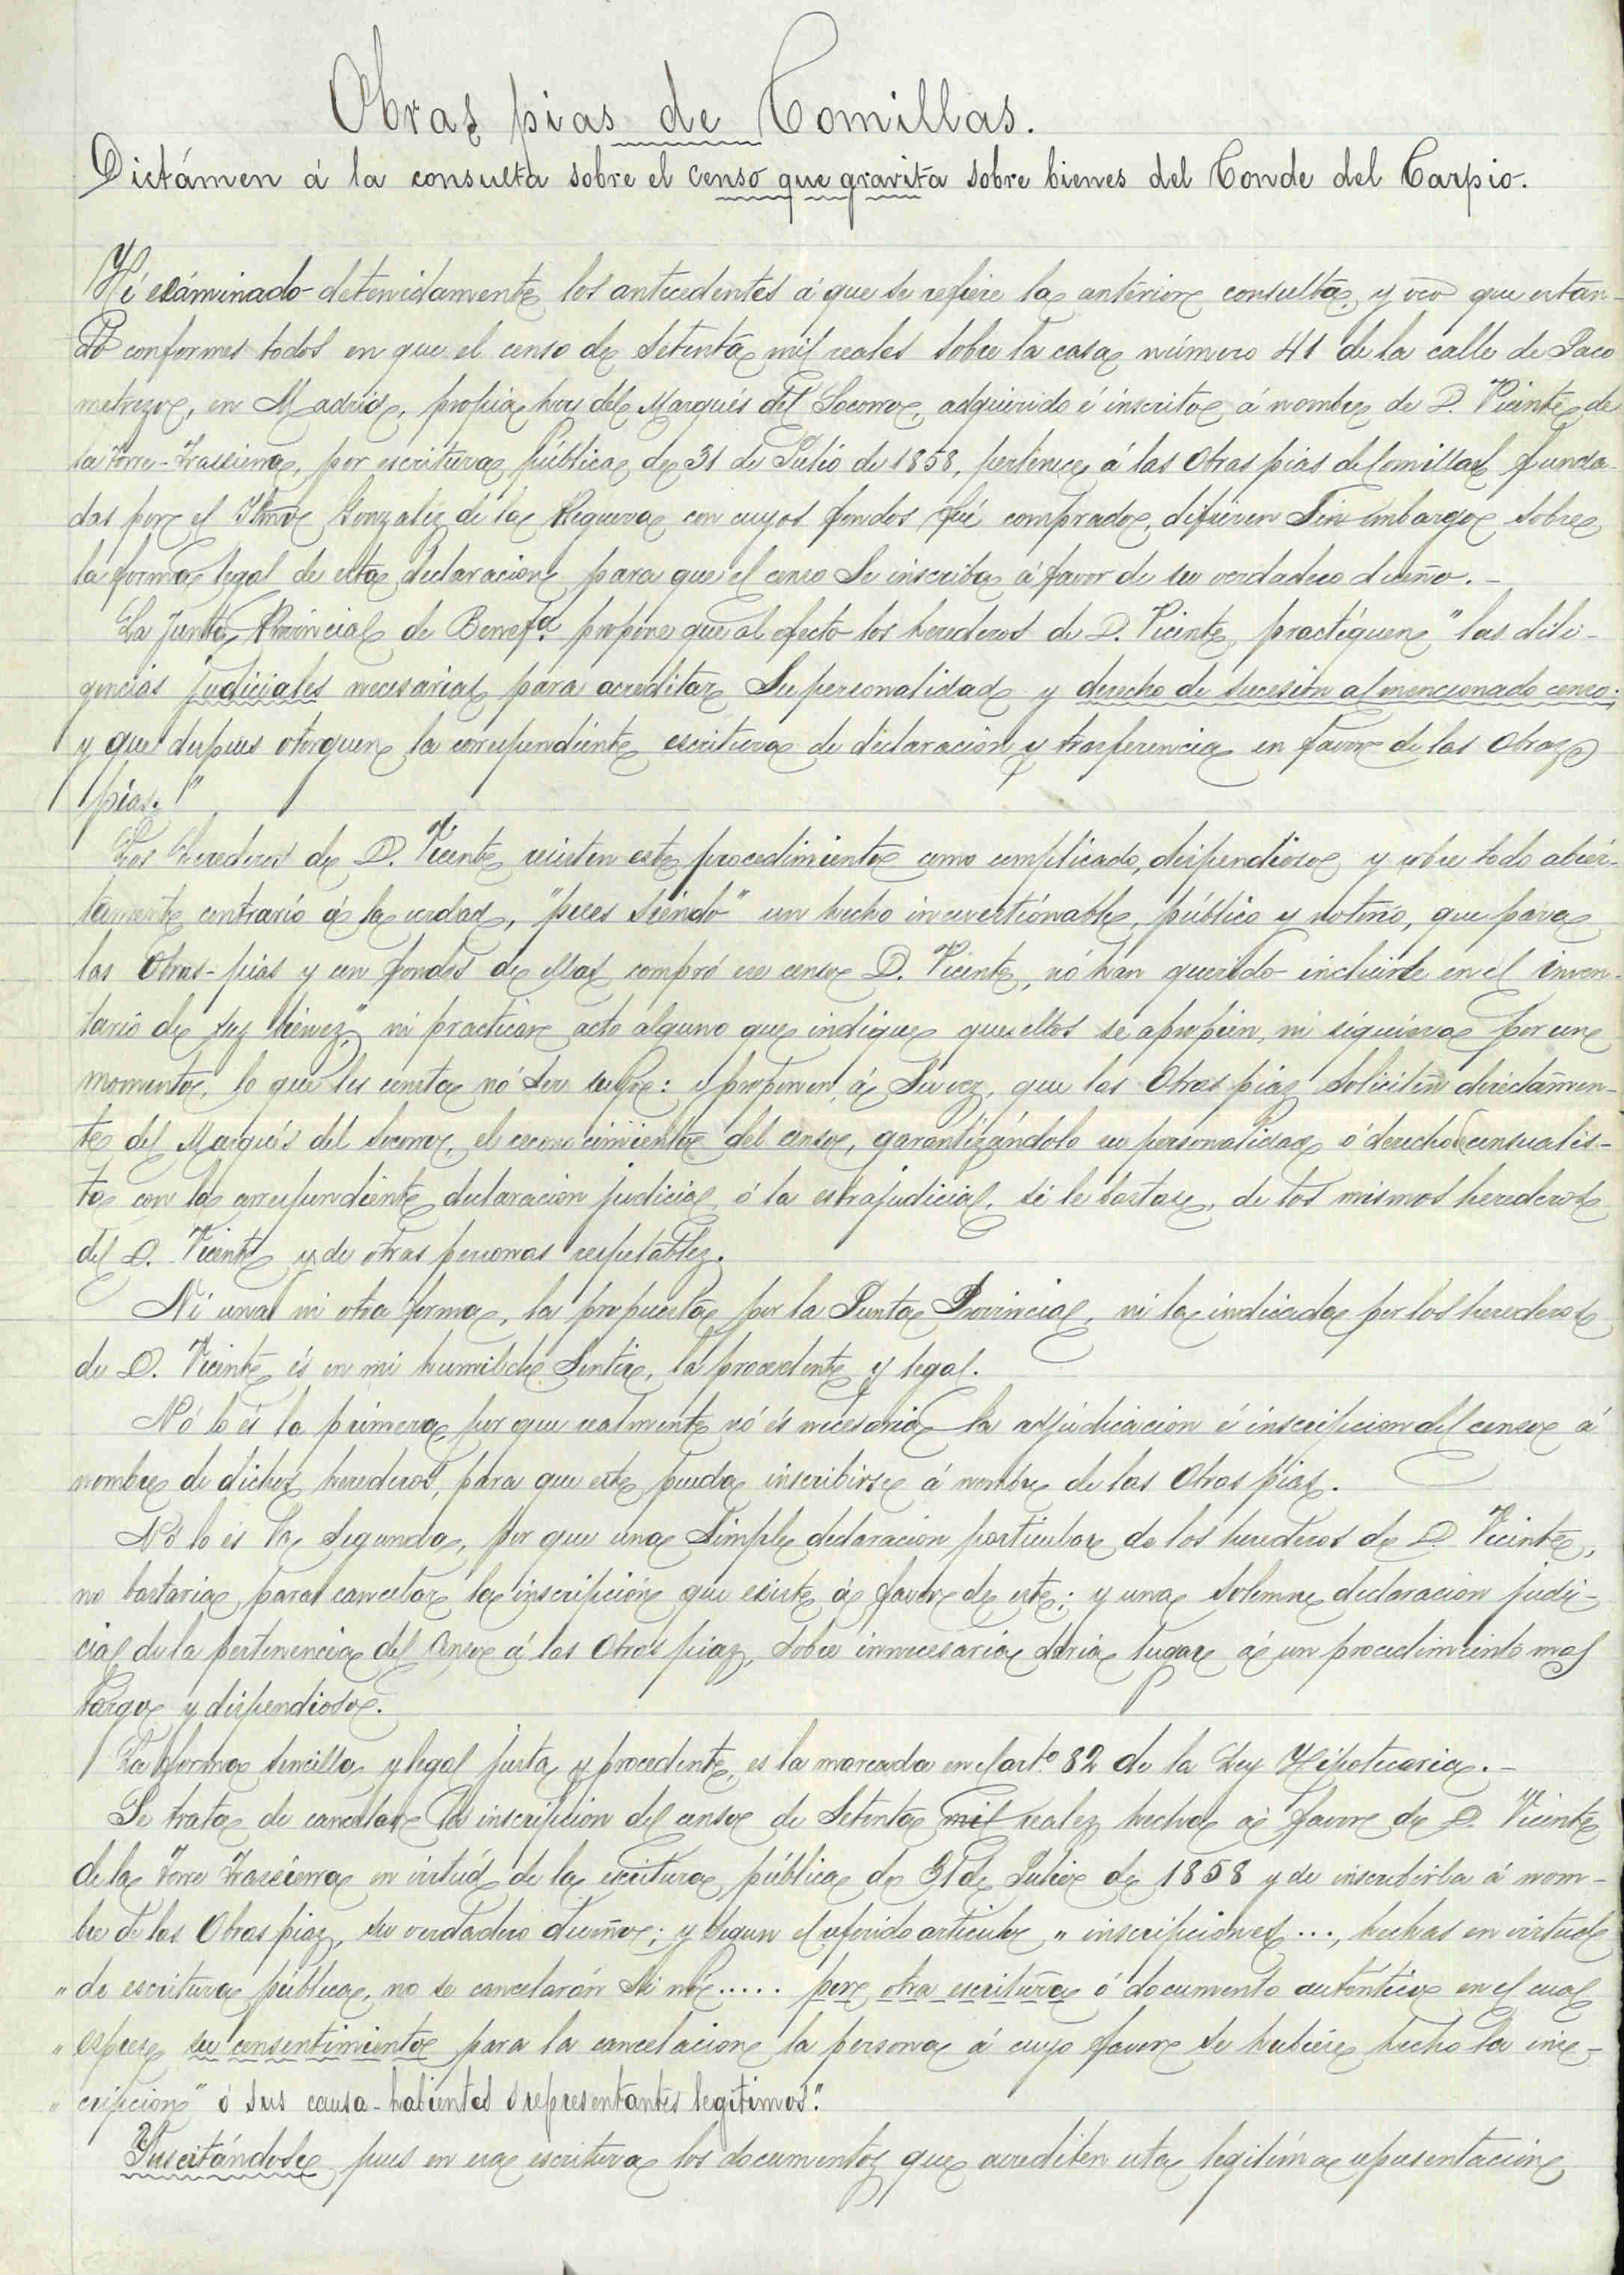 Obras pias de Comillas.
Dictámen á la consulta sobre el censo que gravita sobre bienes del Conde del Carpio.
Hé exáminado detenidamente los antecedentes á que se refiere la anterior consulta, y veo que estan-
do conformes todos en que el censo de Setenta mil reales sobre la casa número 41 de la calle de Jaco
metrezo, en Madrid, propia hoy del Marqués del Socorro, adquirido é inscrito á nombre de D. Vicente de
la Torre-Trassierra, por escritura pública de 31 de Julio de 1858, pertenece á las Obras pias de Comillas funda-
das por el Iltmo Gonzalez de la Reguera con cuyos fondos fué comprado, difieren Sin embargo sobre
la forma legal de esta declaracion para que el censo Se inscriba á favor de su verdadero dueño. -
La Junta Provincial de Benefª propone que al efecto los herederos de D. Vicente practiquen "las dili-
gencias judiciales necesarias para acreditar Su personalidad y derecho de sucesión al mencionado censo;
y que despues otorguen la correspondiente escritura de declaración y trasferencia en favor de las Obras
pias."
Los herederos de D. Vicente resisten este procedimiento como complicado, dispendioso y sobre todo abier-
tamente contrario á la verdad, "pues siendo" un hecho incuestionable, público y notorio, que para
las Obras-pias y con fondos de ellas compró ese censo D. Vicente, nó han querido incluirle en el inven-
tario de sus bienes", ni practicar acto alguno que indique que ellos se apropien, ni siquiera por un
momento, lo que les consta nó Ser suyo: y proponen, á Su vez, que las Obras pias soliciten directamen-
te del Marqués del Socorro, el reconocimiento del censo, garantizándolo su personalidad ó derecho censualis-
ta con la correspondiente declaración judicial, ó la estrajudicial, si le bastase, de los mismos herederos
del D. Vicente y de otras personas respetables.
Ni una ni otra forma, la propuesta por la Junta Provincial, ni la indicada por los herederos
de D. Vicente és en mi humilde Sentir, la procedente y legal.
Nó lo és la primera, por que realmente nó és necesaria la adjudicación é inscripcion del censo á
nombre de dichos herederos, para que este pueda inscribirse á nombre de las Obras pias.
Nó lo és la Segunda, por que una Simple declaración particular de los herederos de D. Vicente,
no bastaria para cancelar la inscripción que existe á favor de este; y una solemne declaración judi-
cial de la pertenencia del censo á las Obras pias, sobre innecesaria daria lugar á un procedimiento mas
largo y dispendioso.
La forma sencilla y legal justa y procedente, es la marcada en el artº 82 de la Ley Hipotecaria. -
Se trata de cancelar la inscripción del censo de Setenta mil reales hecha á favor de D. Vicente
de la Torre Trassierra en virtud de la escritura pública de 31 de Julio de 1858 y de inscribirla á nom-
bre de las Obras pias, su verdadero dueño; y segun el referido articulo " inscripciones..., hechas en virtud
" de escritura pública, no se cancelarán Si nó..... por otra escritura ó documento auténtico en el cual
" esprese su consentimiento para la cancelacion la persona á cuyo favor se hubiere hecho la ins-
" cripcion" ó sus causa-habientes ó representantes legitimos".
Insertándose pues en esa escritura los documentos que acrediten esta legitima representacion,